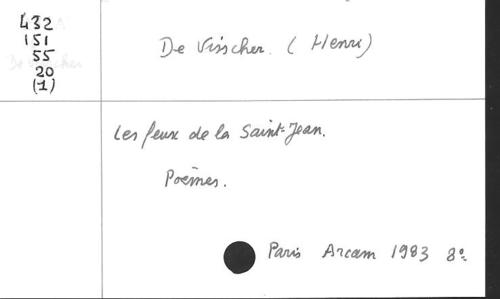 432
151
55
20
(1)
De Visscher. (Henri)
Les feux de la Saint-Jean.
Poèmes.
Paris Arcam 1983 8º